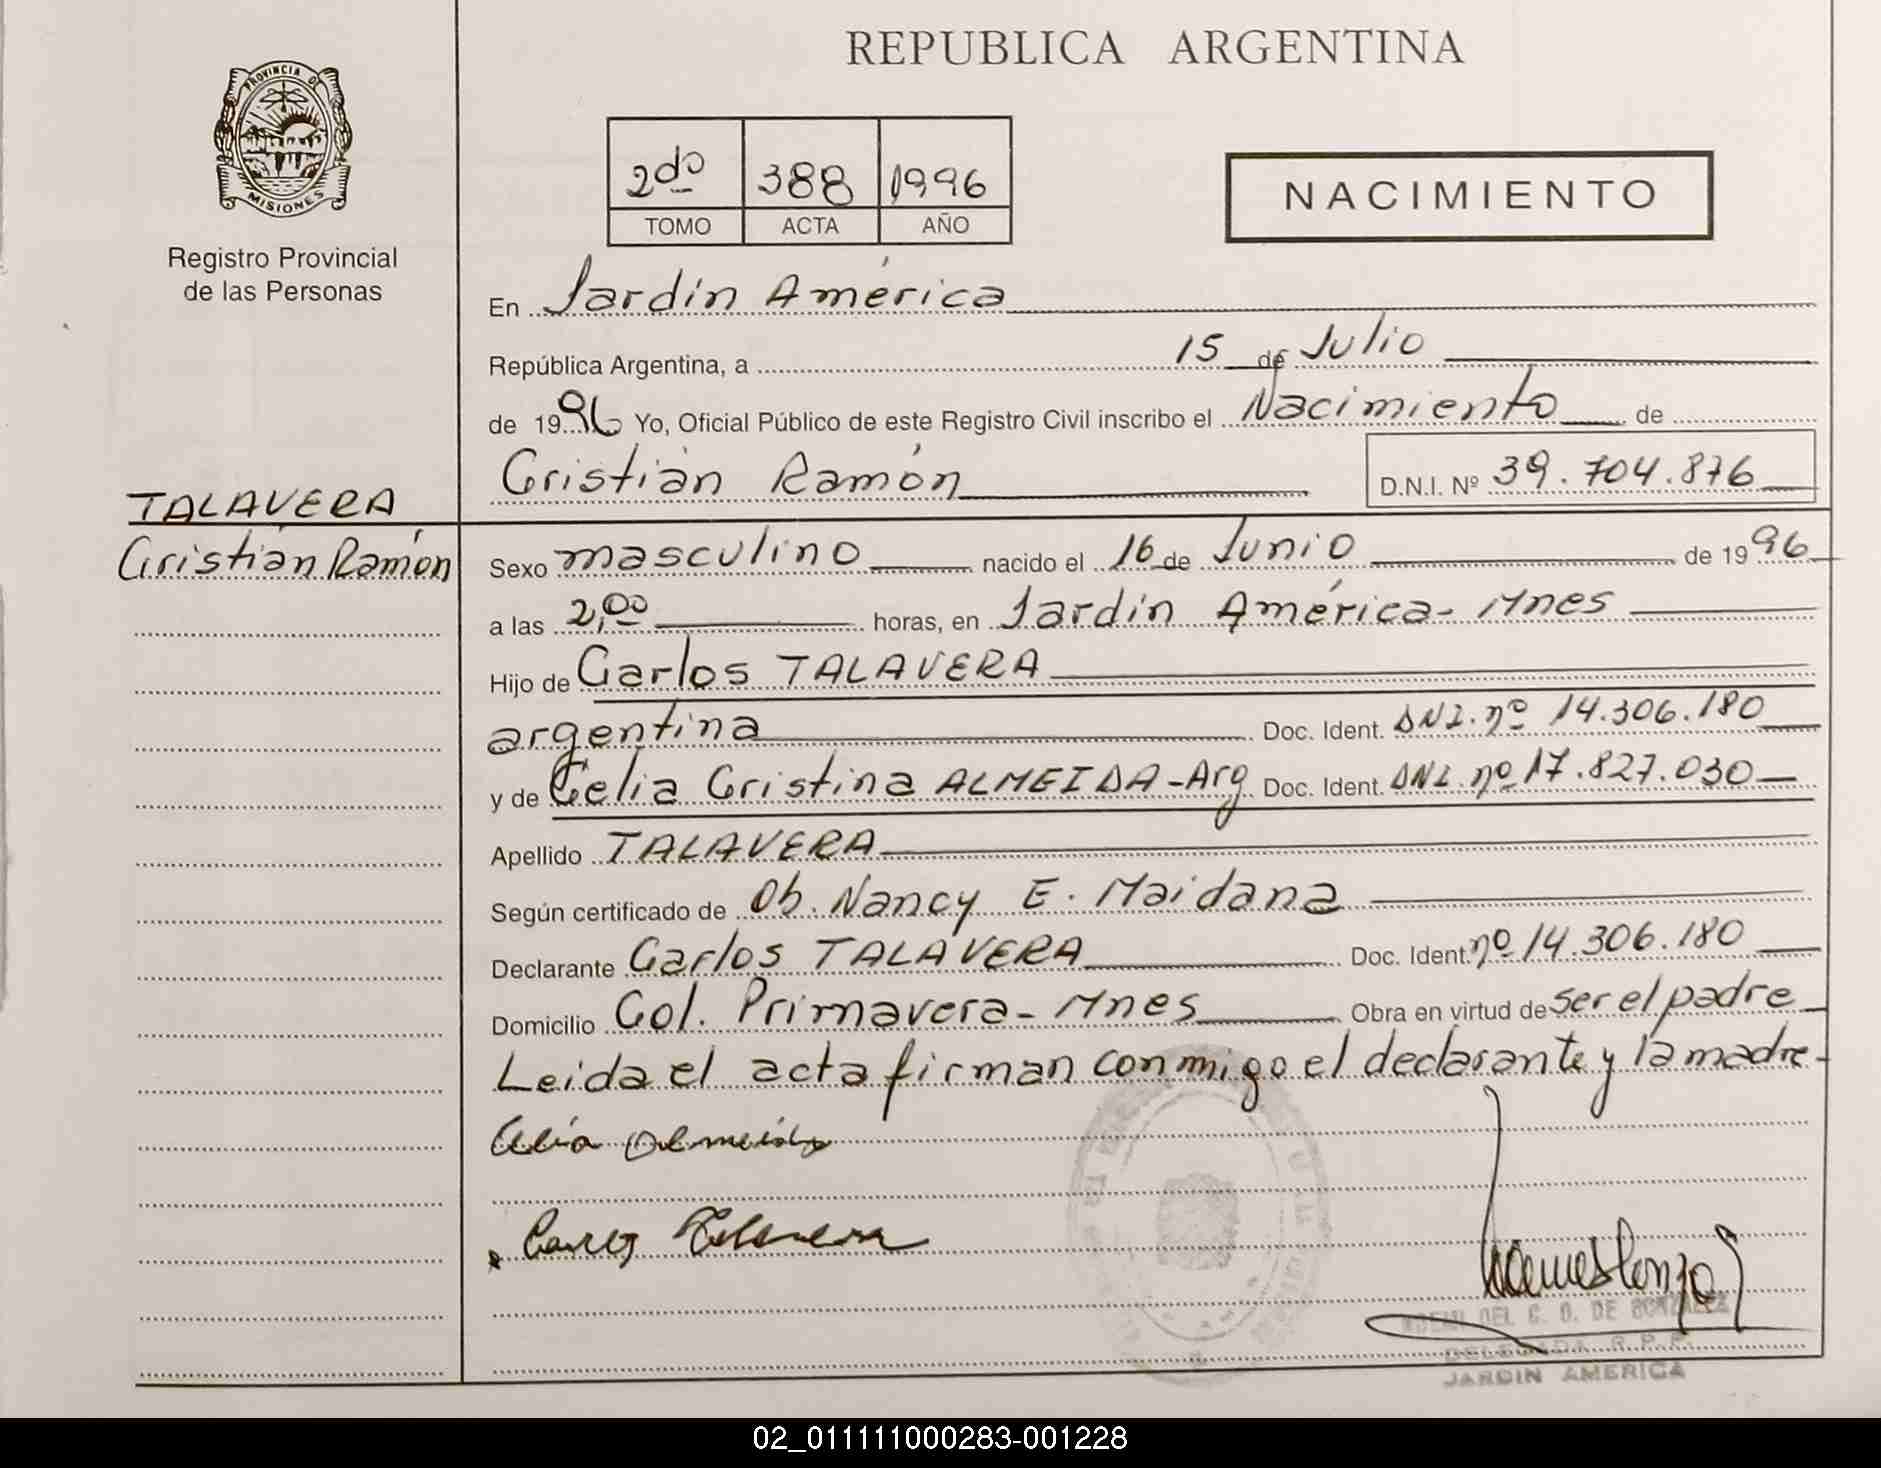 REPUBLICA ARGENTINA
PROVINCIA DE
MISIONES
Registro Provincial
de las Personas
2do 388 1996
TOMO ACTA AÑO
NACIMIENTO
En Jardín América
República Argentina, a 15 de Julio
de 1996 Yo, Oficial Público de este Registro Civil inscribo el Nacimiento de
Cristián Ramón D.N.I. Nº 39.704.876
TALAVERA
Cristián Ramón
Sexo masculino nacido el 16 de Junio de 1996
a las 2,00 horas, en Jardín América - Mnes
Hijo de Carlos TALAVERA
argentina Doc. Ident. DNI. nº 14.306.180
y de Celia Cristina ALMEIDA - Arg Doc. Ident. DNI. nº 17.827.030
Apellido TALAVERA
Según certificado de Ob. Nancy E. Maidana
Declarante Carlos TALAVERA Doc. Ident. nº 14.306.180
Domicilio Col. Primavera - Mnes Obra en virtud de ser el padre
Leida el acta firman conmigo el declarante y la madre -
Celia Almeida
Carlos Talavera
NOEMI DEL C. O. DE GONZALEZ
DELEGADA R.P.P.
JARDIN AMERICA
02_011111000283-001228